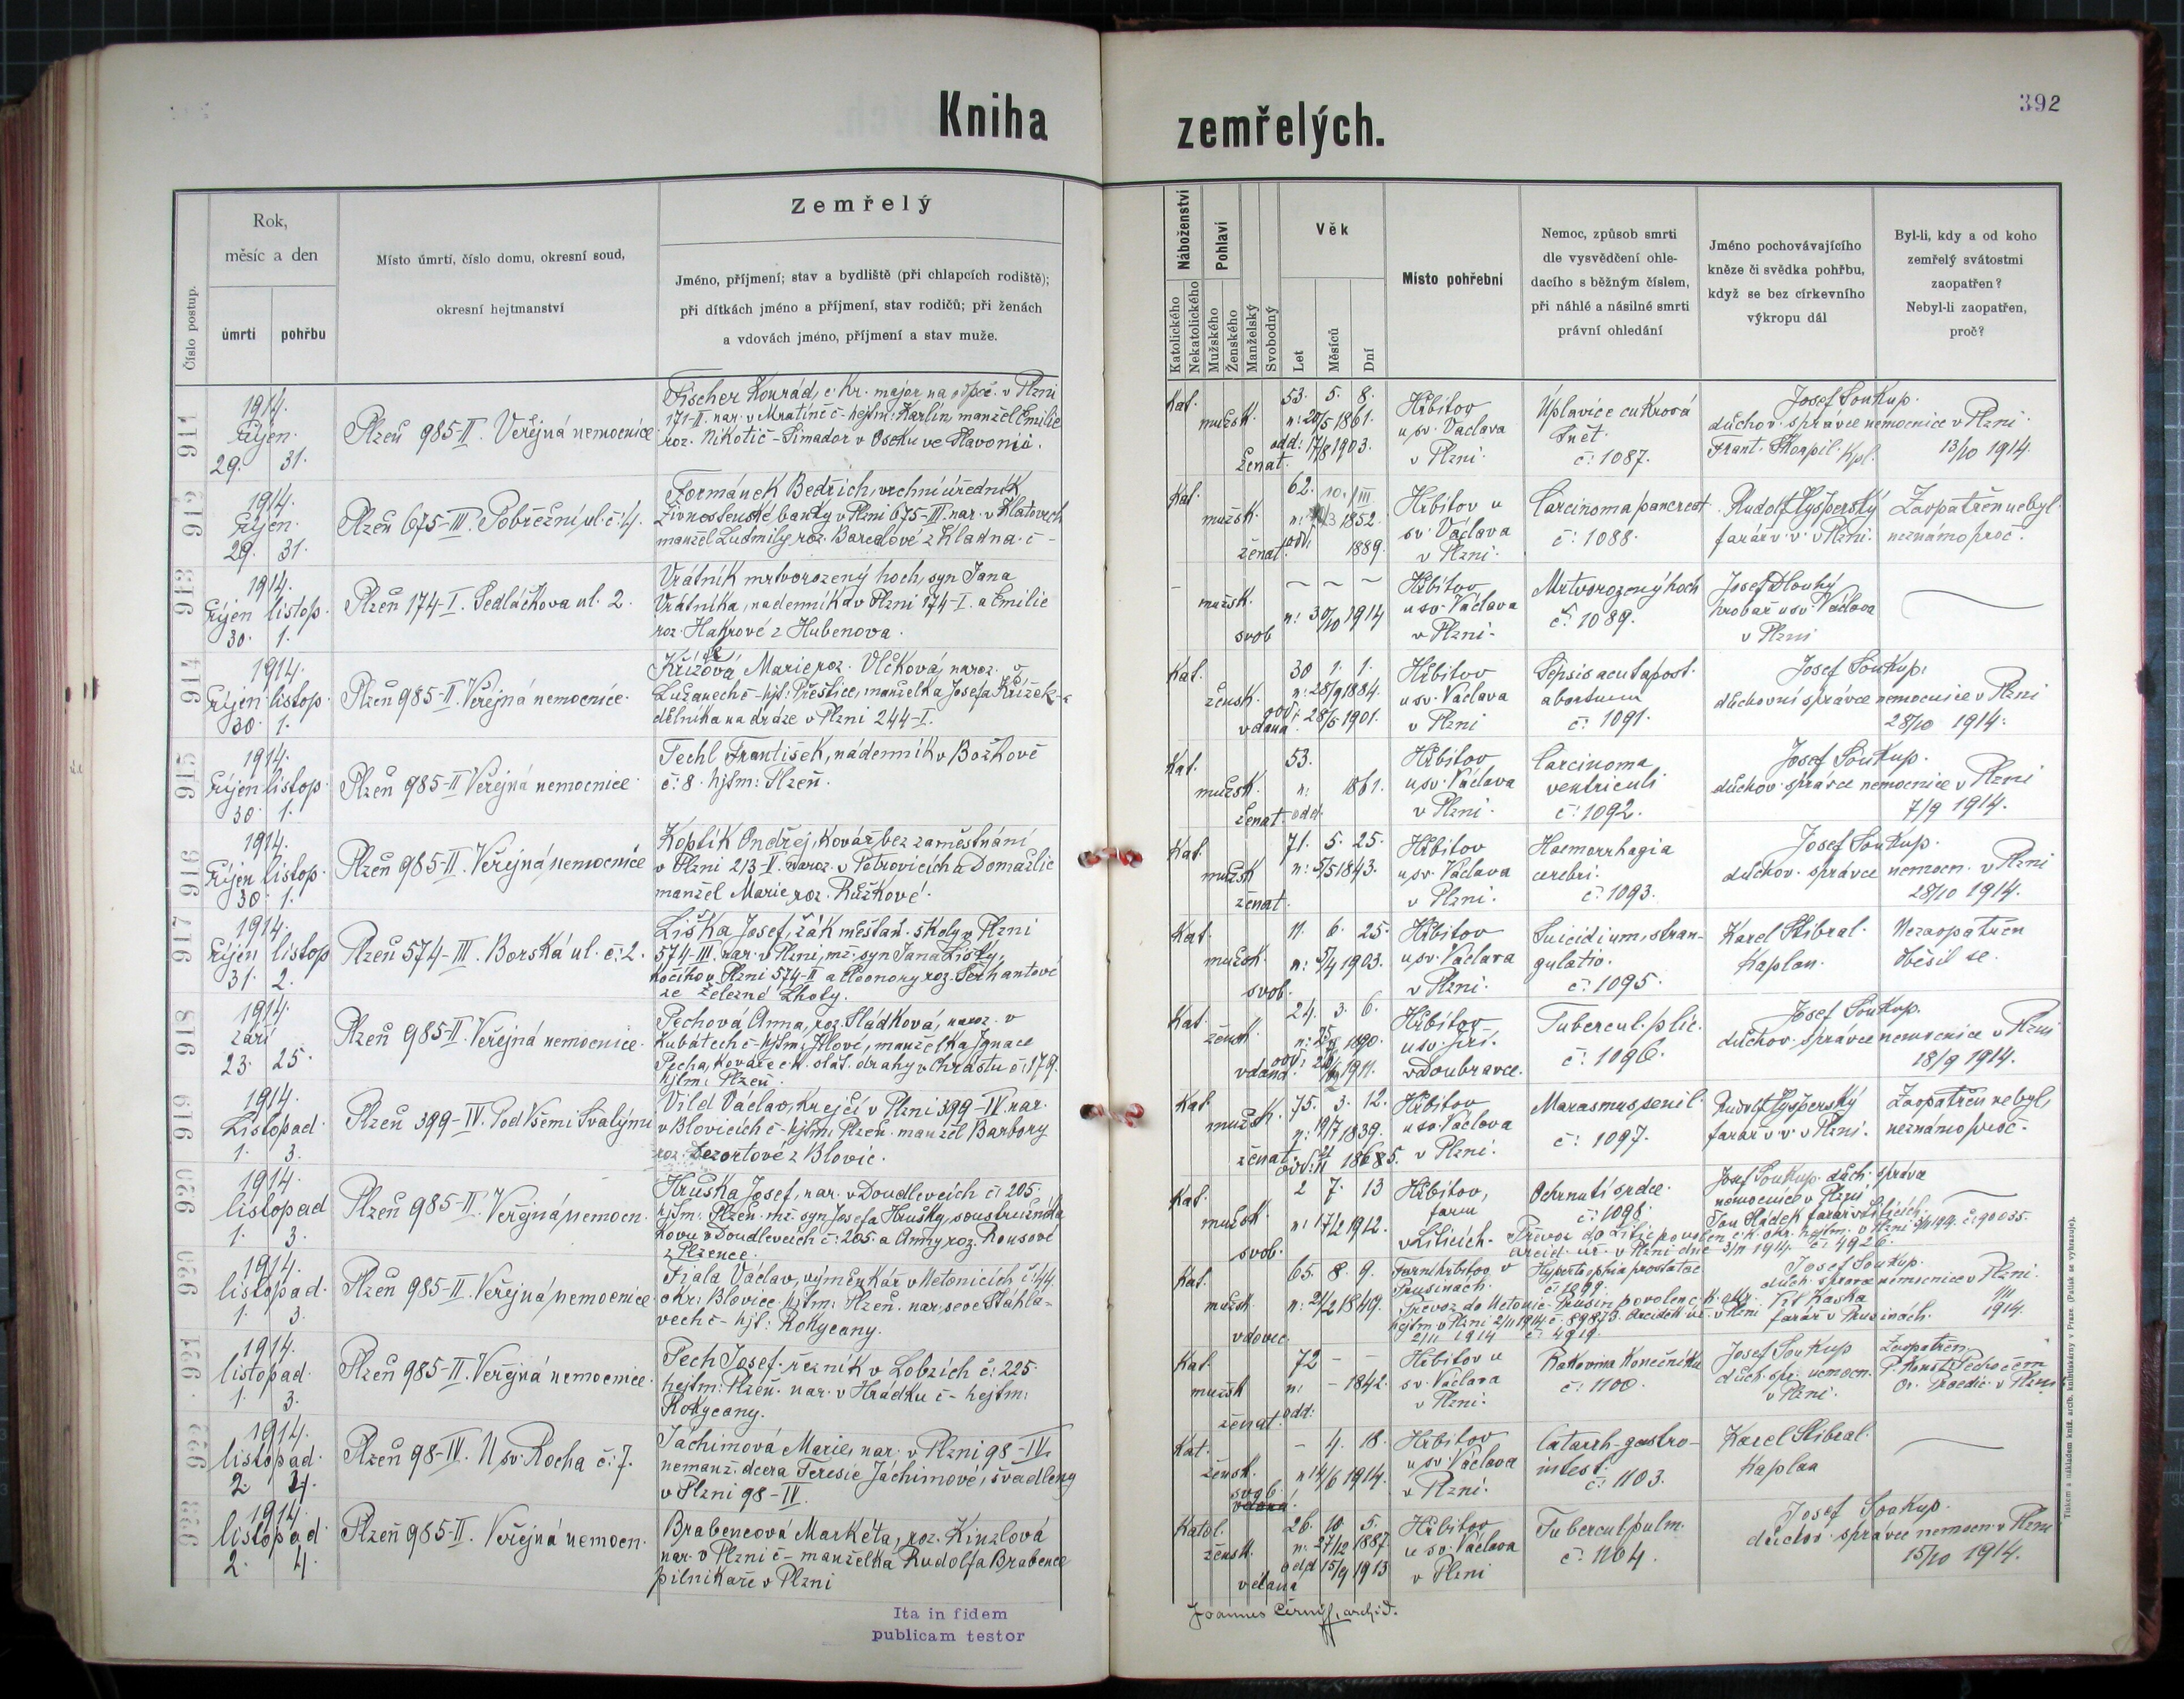 Kniha
zemřelých.
392
Číslo postup.
Rok,
měsíc a den
úmrtí
pohřbu
Místo úmrtí, číslo domu, okresní soud,
okresní hejtmanství
Zemřelý
Jméno, příjmení; stav a bydliště (při chlapcích rodiště);
při dítkách jméno a příjmení, stav rodičů; při ženách
a vdovách jméno, příjmení a stav muže.
Náboženství
Katolického
Nekatolického
Pohlaví
Mužského
Ženského
Manželský
Svobodný
Věk
Let
Měsíců
Dní
Místo pohřební
Nemoc, způsob smrti
dle vysvědčení ohle-
dacího s běžným číslem,
při náhlé a násilné smrti
právní ohledání
Jméno pochovávajícího
kněze či svědka pohřbu,
když se bez církevního
výkropu dál
Byl-li, kdy a od koho
zemřelý svátostmi
zaopatřen?
Nebyl-li zaopatřen,
proč?
911
1914.
říjen.
29. 31.
Plzeň 985-II. Veřejná nemocnice
Fischer Konrád, c. kr. major na odpoč. v Plzni
171-II. nar. v Mratíně č - hejtm: Karlín, manžel Emilie
roz. Nikotič-Simador v Oseku ve Slavonii.
Kat.
mužsk.
ženat.
53. 5. 8.
n: 20/5 1861.
odd: 17/8 1903.
Hřbitov
u sv. Václava
v Plzni.
Úplavice cukrová
Sněť.
č: 1087.
Josef Soukup.
duchov. správce nemocnice v Plzni
Frant. Skoupil. Kpl.
13/10 1914.
912
1914.
říjen.
29. 31.
Plzeň 675-III. Pobřežní ul. č: 4.
Formánek Bedřich, vrchní úředník
Živnostenské banky v Plzni 675-III. nar. v Klatovech
manžel Ludmily roz. Baredové z Kladna. č -
Kat.
mužsk.
ženat.
62.
1852.
odd: 1889.
Hřbitov u
sv. Václava
v Plzni.
Carcinoma pancreat.
č: 1088.
Rudolf Hyšperský
farář v. v. v Plzni.
Zaopatřen nebyl
neznámo proč.
913
1914.
říjen listop.
30. 1.
Plzeň 174-I. Sedláčkova ul. 2.
Vrátník mrtvorozený hoch, syn Jana
Vrátníka, nadenníka v Plzni 174-I. a Emilie
roz. Hakrové z Hubenova.
mužsk.
svob
n: 30/10 1914
Hřbitov
u sv. Václava
v Plzni.
Mrtvorozený hoch
č: 1089.
Josef Dlouhý
hrobař u sv. Václava
v Plzni
914
1914.
říjen listop.
30. 1.
Plzeň 985-II. Veřejná nemocnice.
Křížová, Marie roz. Vlčková, naroz. v
Lužanech č - hjt: Přeštice, manželka Josefa Křížek
dělníka na dráze v Plzni 244-I.
Kat.
žensk.
vdaná
30 1. 1.
n: 28/9 1884.
odd: 28/5 1901.
Hřbitov
u sv. Václava
v Plzni
Sepsis acuta post.
abortum
č: 1091.
Josef Soukup.
duchovní správce nemocnice v Plzni
28/10 1914.
915
1914.
říjen listop.
30. 1.
Plzeň 985-II Veřejná nemocnice.
Techl František, nádenník v Božkově
č: 8. hjtm: Plzeň.
Kat.
mužsk.
ženat.
53.
n: 1861.
odd.
Hřbitov
u sv. Václava
v Plzni.
Carcinoma
ventriculi
č: 1092.
Josef Soukup.
duchov. správce nemocnice v Plzni
7/9 1914.
916
1914.
říjen listop.
30. 1.
Plzeň 985-II. Veřejná nemocnice
Koplík Ondřej, kovář bez zaměstnání
v Plzni 213-I. naroz. v Petrovicích a Domažlic
manžel Marie roz. Růžkové.
Kat.
mužsk
ženat.
71. 5. 25.
n: 5/5 1843.
Hřbitov
u sv. Václava
v Plzni.
Haemorrhagia
cerebri.
č: 1093.
Josef Soukup.
duchov. správce nemocn. v Plzni
28/10 1914.
917
1914.
říjen listop
31. 2.
Plzeň 574-III. Borská ul. č: 2.
Liška Josef, žák měšťan. školy v Plzni
574-III. nar. v Plzni, mž. syn Jana Lišky,
kočího v Plzni 574-II a Eleonory roz. Serhantové
ze Železné Lhoty.
Kat.
mužsk.
svob.
11. 6. 25.
n: 5/4 1903.
Hřbitov
u sv. Václava
v Plzni.
Suicidium, stran-
gulatio.
č: 1095.
Karel Stibral.
Kaplan.
Nezaopatřen
oběsil se.
918
1914.
září
23. 25.
Plzeň 985-II. Veřejná nemocnice.
Pechová Anna, roz. Sládková, naroz. v
Lubatech č - hjtm: Jílové, manželka Ignace
Pecha, kováře c. k. stát. dráhy v Chrástu č: 179.
hjtm: Plzeň.
Kat.
žensk.
vdaná
24. 3. 6.
1890.
odd: 1911.
Hřbitov
u sv. Jiří.
v Doubravce.
Tubercul. plic.
č: 1096.
Josef Soukup.
duchov. správce nemocnice v Plzni
18/9 1914.
919
1914.
Listopad.
1. 3.
Plzeň 399-IV. Pod Všemi Svatými
Vild Václav, krejčí v Plzni 399-IV. nar.
v Blovicích č - hjtm: Plzeň. manžel Barbory
roz. Dezortové z Blovic.
Kat.
mužsk.
ženat.
75. 3. 12.
n: 19/7 1839.
Hřbitov
u sv. Václava
v Plzni.
Marasmus senil.
č: 1097.
Rudolf Hyšperský
farář v. v. v Plzni.
Zaopatřen nebyl,
neznámo proč.
920
1914.
listopad
1. 3.
Plzeň 985-II. Veřejná nemocn.
Hruška Josef, nar. v Doudlevcích č: 205.
hjtm: Plzeň. mž. syn Josefa Hrušky, soustružníka
kovu v Doudlevcích č: 205. a Anny roz. Rousové
z Plzence.
Kat.
mužsk.
svob.
2 7. 13
n: 17/2 1912.
Hřbitov,
farní
v Liticích.
Ochrnutí srdce.
č: 1098.
Josef Soukup. duch. správce
nemocnice v Plzni
Jan Sládek farář v Liticích.
Převoz do Litic povolen c. k. okr. hejtm. v Plzni 3/11 1914. č: 90035.
arcid. úř. v Plzni dne 3/11 1914. č: 4926.
1914.
listopad.
1. 3.
Plzeň 985-II. Veřejná nemocnice
Fiala Václav, výměnkář v Netonicích č: 44.
okr: Blovice hjtm: Plzeň. nar. ve Štáhla-
vech č - hjt: Rokycany.
Kat.
mužsk.
vdovec.
65. 8. 9.
n: 21/2 1849.
Farní hřbitov v
Prusinách.
Hypertrophia prostatae
č: 1099.
Převoz do Netonic-Prusin povolen c. k. okr.
hejtm v Plzni 2/11 1914. č: 89873. arcidek. úř. v Plzni
2/11 1914 č: 4919.
Josef Soukup.
duch. správce nemocnice v Plzni.
Vít Kaska
farář v Prusinách.
1914.
1914.
listopad.
1. 3.
Plzeň 985-II. Veřejná nemocnice.
Pech Josef. řezník v Lobzích č: 225.
hejtm: Plzeň. nar. v Hrádku č - hejtm:
Rokycany.
Kat.
mužsk
ženat.
72 - -
n: - 1842.
odd:
Hřbitov u
sv. Václava
v Plzni.
Rakovina konečníku
č: 1100.
Josef Soukup
duch. spr. nemocn.
v Plzni.
Zaopatřen
v Plzni
1914.
listopad.
2. 4.
Plzeň 98-IV. U sv. Rocha č: 7.
Jáchimová Marie, nar. v Plzni 98-IV.
nemanž. dcera Teresie Jáchimové, švadleny
v Plzni 98-IV.
Kat.
žensk.
svob.
- 4. 18.
n 14/6 1914.
Hřbitov
u sv. Václava
v Plzni.
Catarrh-gastro-
intest.
č: 1103.
Karel Stibral.
Kaplan
1914
listopad
2. 4.
Plzeň 985-II. Veřejná nemocn.
Brabencová Markéta, roz. Kinzlová
nar. v Plzni č - manželka Rudolfa Brabence
pilnikaře v Plzni
Katol.
žensk.
vdaná
26. 10 5.
n: 27/12 1887.
odd 15/9 1913
Hřbitov
u sv. Václava
v Plzni
Tubercul. pulm.
č: 1104.
Josef Soukup.
duchov. správce nemocn. v Plzni
15/10 1914.
Ita in fidem
publicam testor
Joannes Černý, archid.